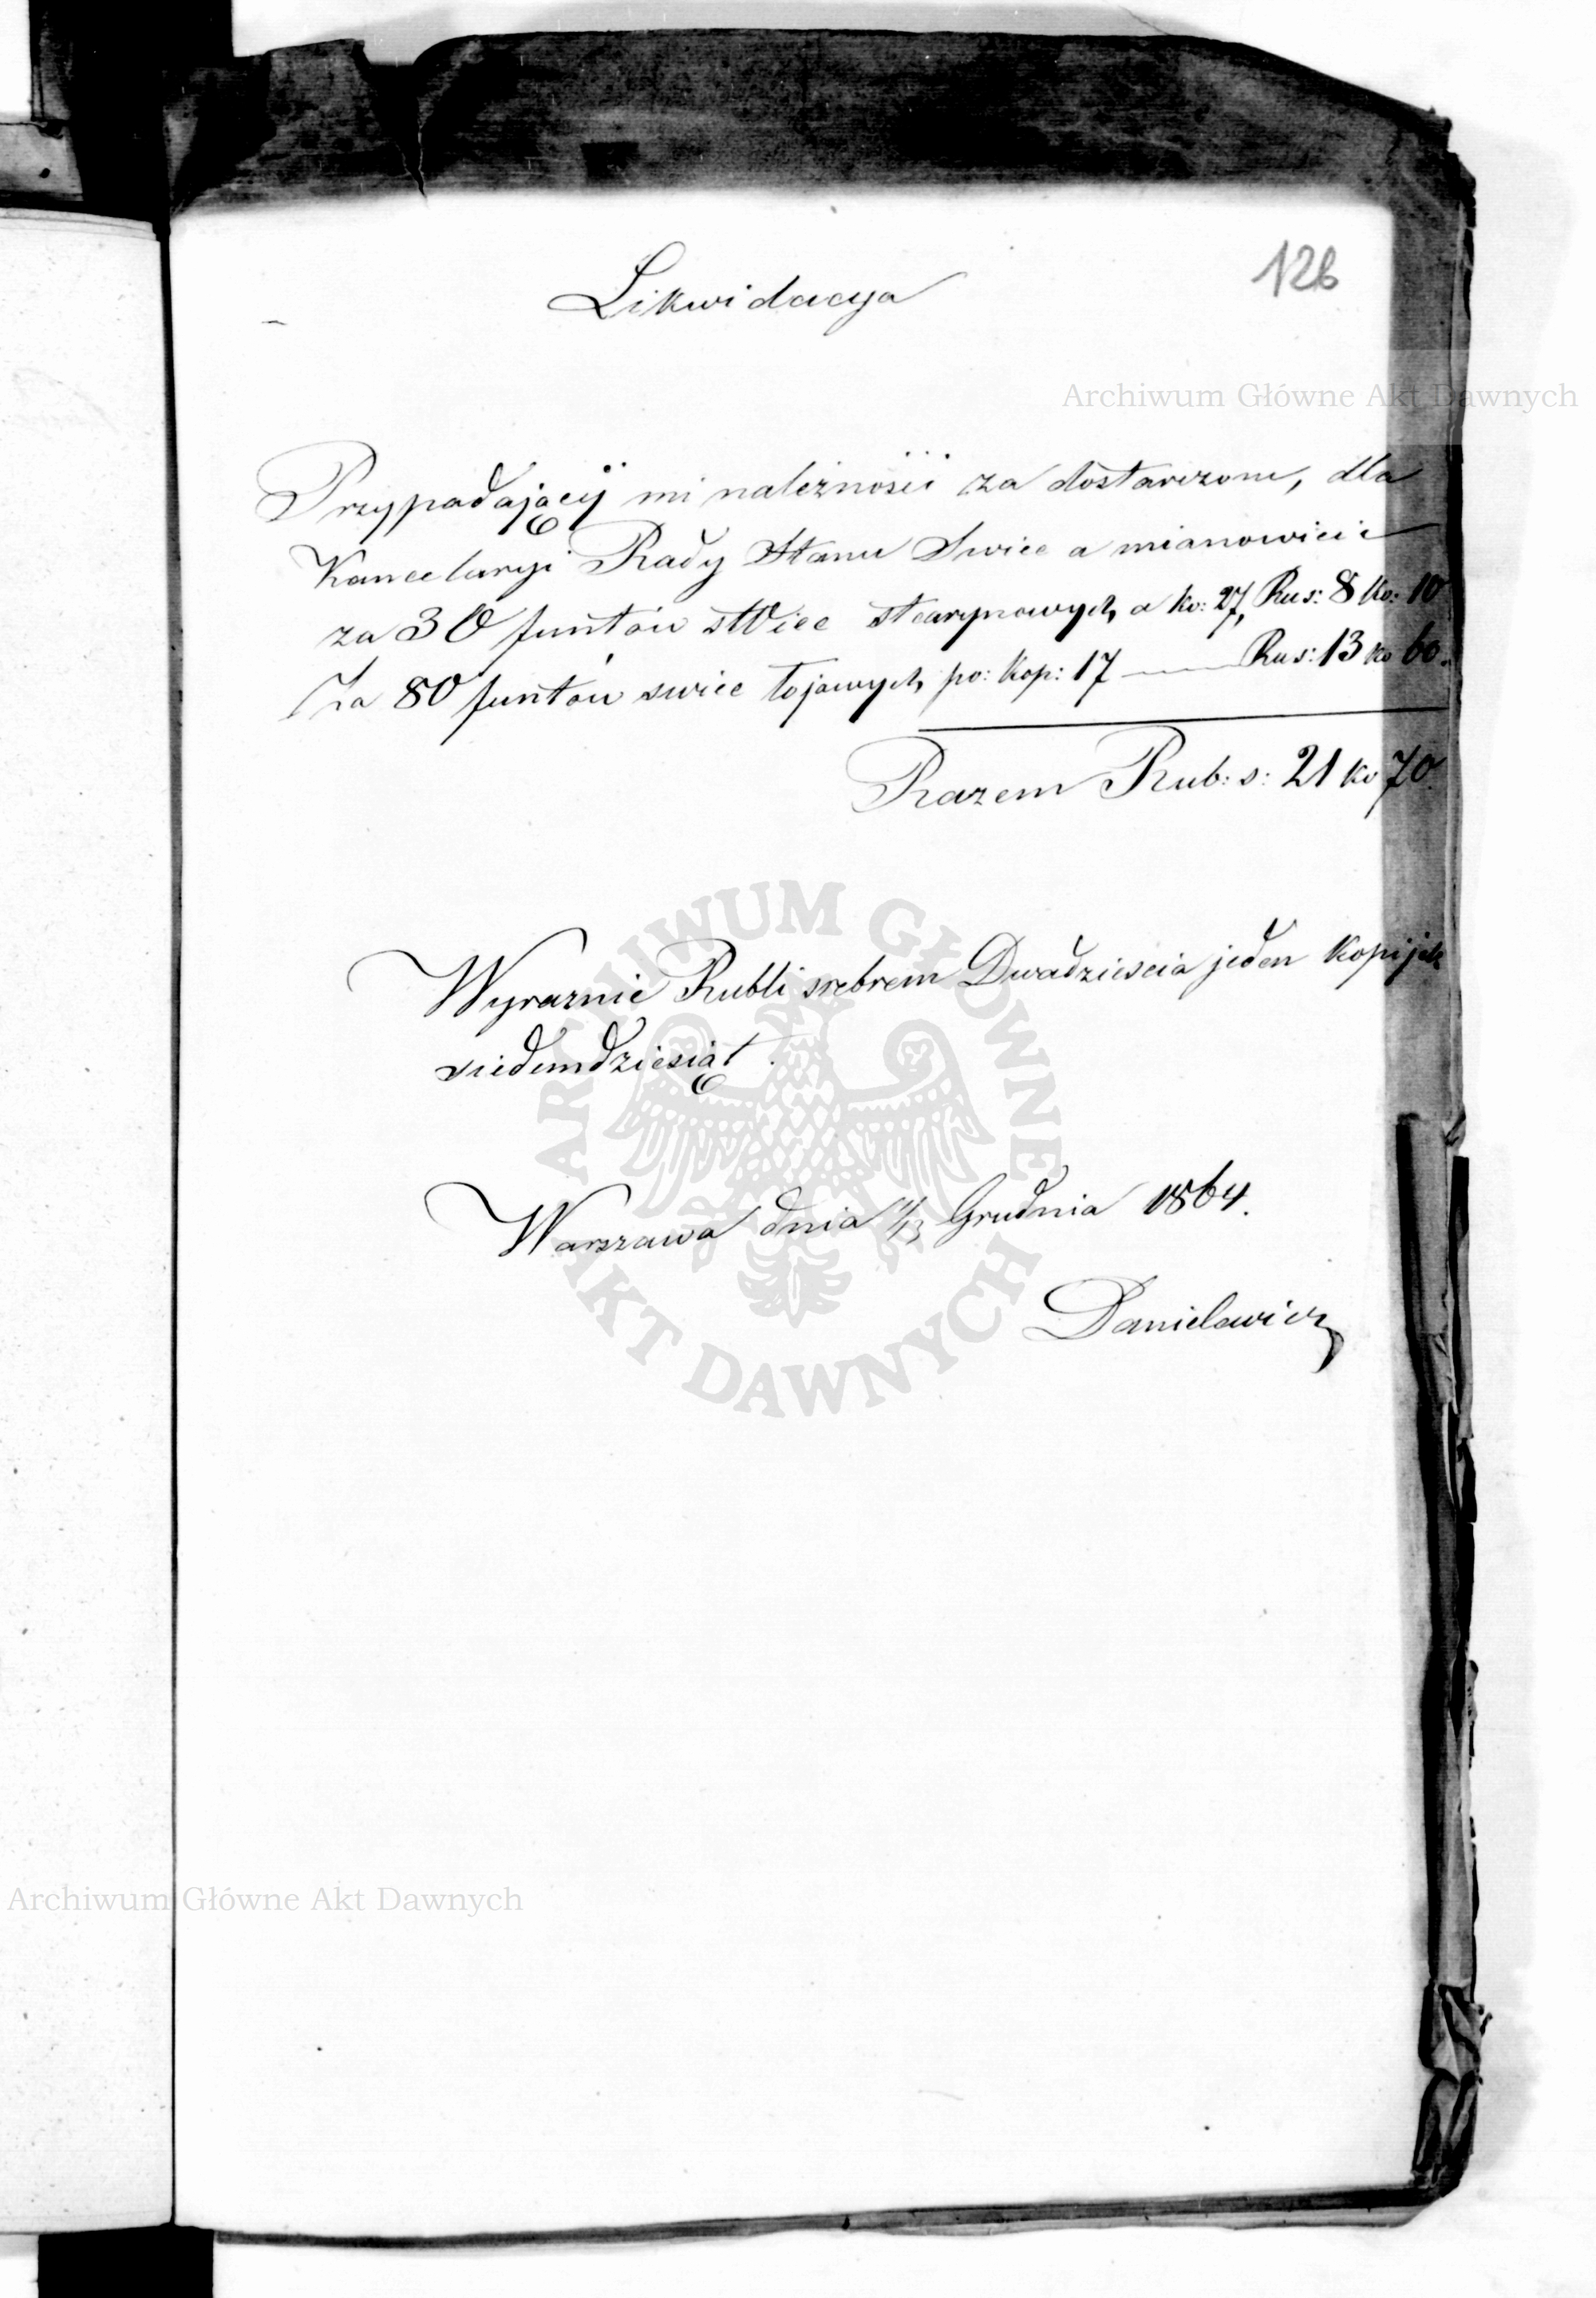 Likwidacya
126
Archiwum Główne Akt Dawnych
Przypadającÿ mi należności za dostarczone, dla
Kancelaryi Rady Stanu Swiec a mianowicie
za 30 funtów sWiec stearynowych a ko: 27, Rus: 8 ko: 10
Za 80 funtów swiec łojowych po: kop: 17 — Rus: 13 ko 60.
Razem Rub: s: 21 ko 70.
Wyraznie Rubli srebrem Dwadziescia jeden kopijek
siedemdziesiąt.
Warszawa dnia 1/13 Grudnia 1864.
Danielewicz
ARCHIWUM GŁÓWNE AKT DAWNYCH
Archiwum Główne Akt Dawnych